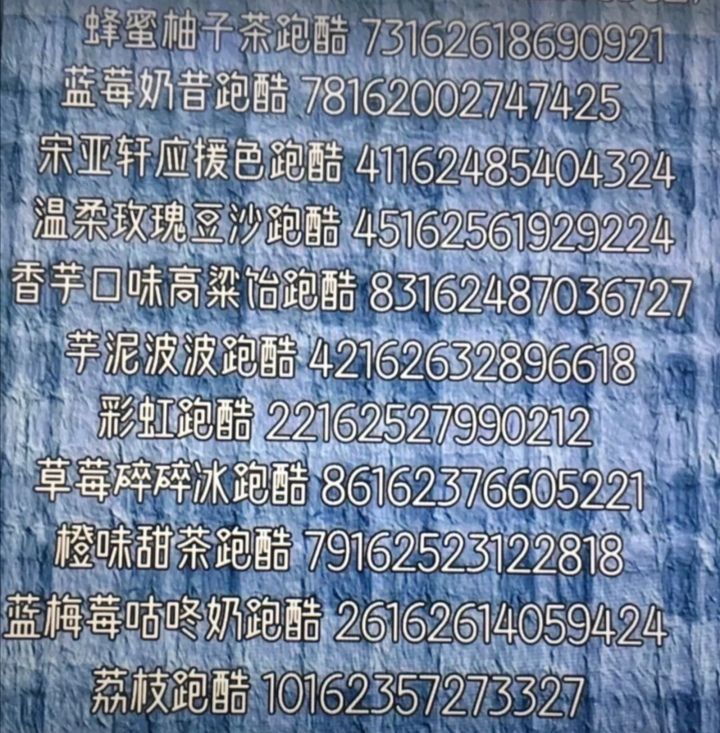 蜂蜜柚子茶跑酷 73162618690921
蓝莓奶昔跑酷 78162002747425
宋亚轩应援色跑酷 41162485404324
温柔玫瑰豆沙跑酷 45162561929224
香芋口味高粱饴跑酷 83162487036727
芋泥波波跑酷 42162632896618
彩虹跑酷 22162527990212
草莓碎碎冰跑酷 86162376605221
橙味甜茶跑酷 79162523122818
蓝梅莓咕咚奶跑酷 26162614059424
荔枝跑酷 10162357273327